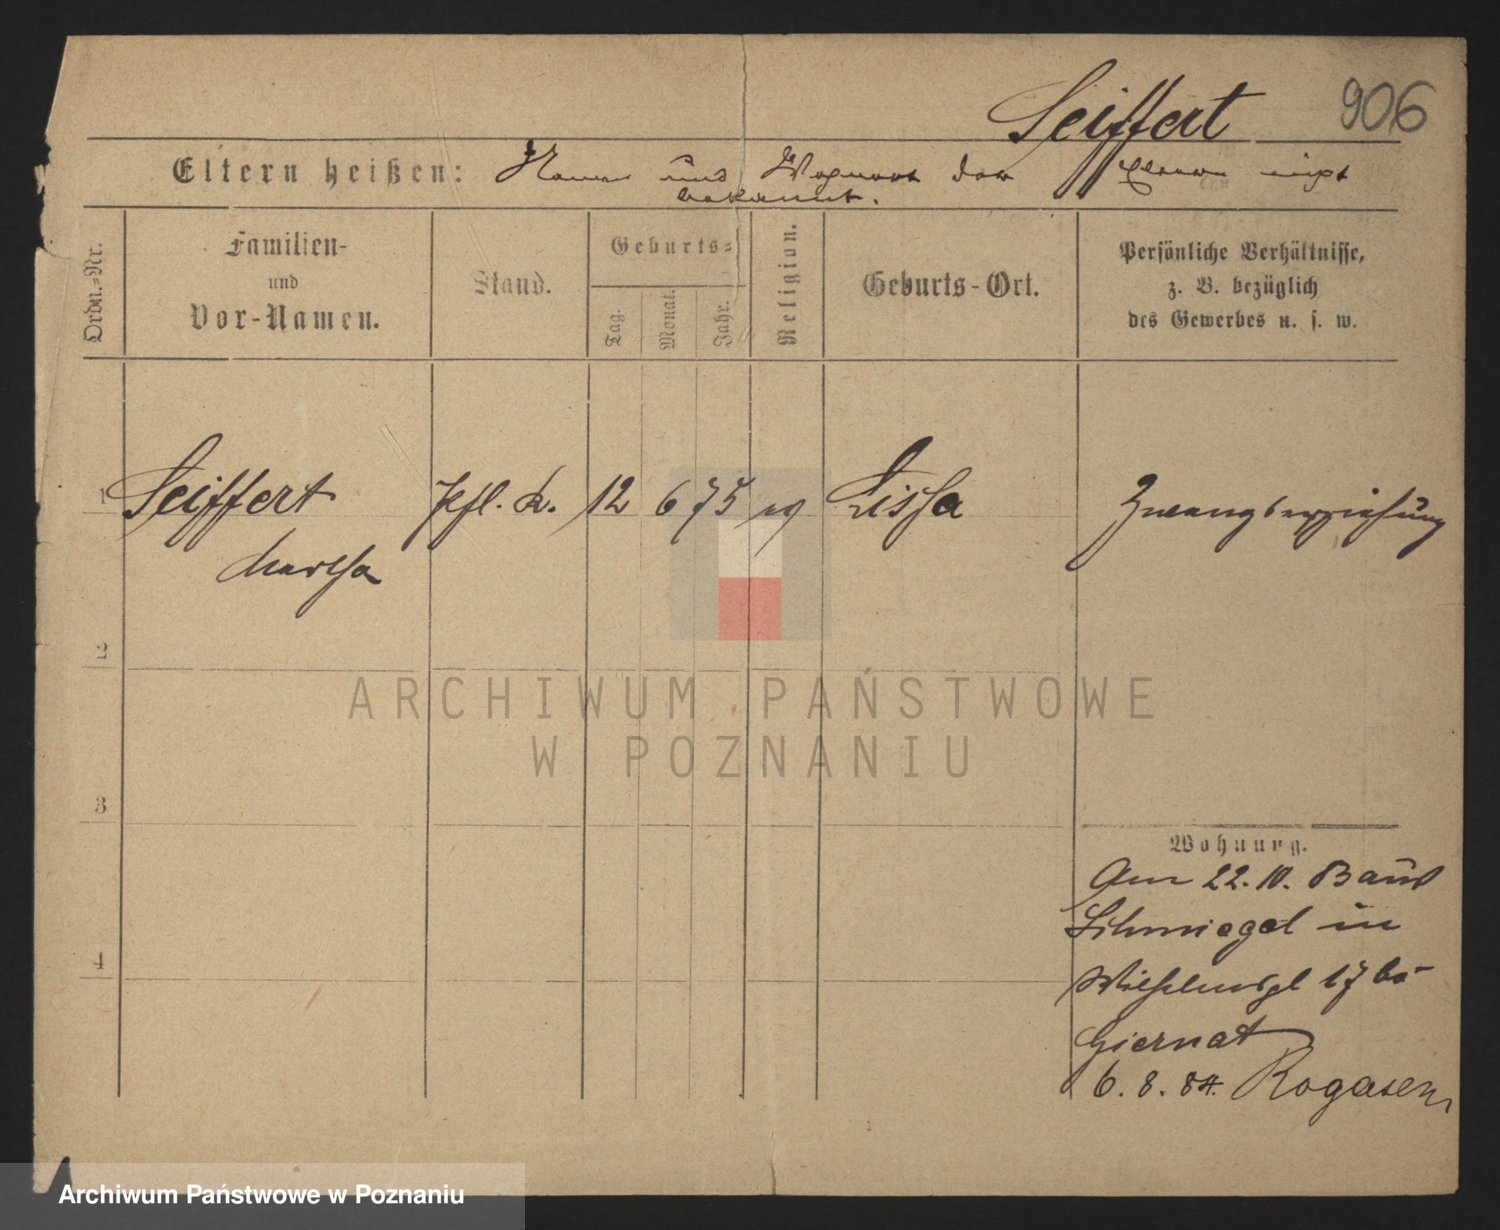 Seiffert 906
Eltern heißen: Name und Wohnort der Eltern nicht
bekannt.
Ordn.=Nr.
Familien-
und
Vor-Namen.
Stand.
Geburts=
Tag.
Monat.
Jahr.
Religion.
Geburts-Ort.
Persönliche Verhältnisse,
z. B. bezüglich
des Gewerbes u. s. w.
1 Seiffert Pfl. K. 12 6 75 ev Lissa Zwangserziehung
Martha
2
ARCHIWUM PAŃSTWOWE
W POZNANIU
3
Wohnung.
Am 22. 10. Baus
Schmiegel in
Wilhelmspl 17 bei
4
Giernat
6. 8. 84. Rogasen
Archiwum Państwowe w Poznaniu